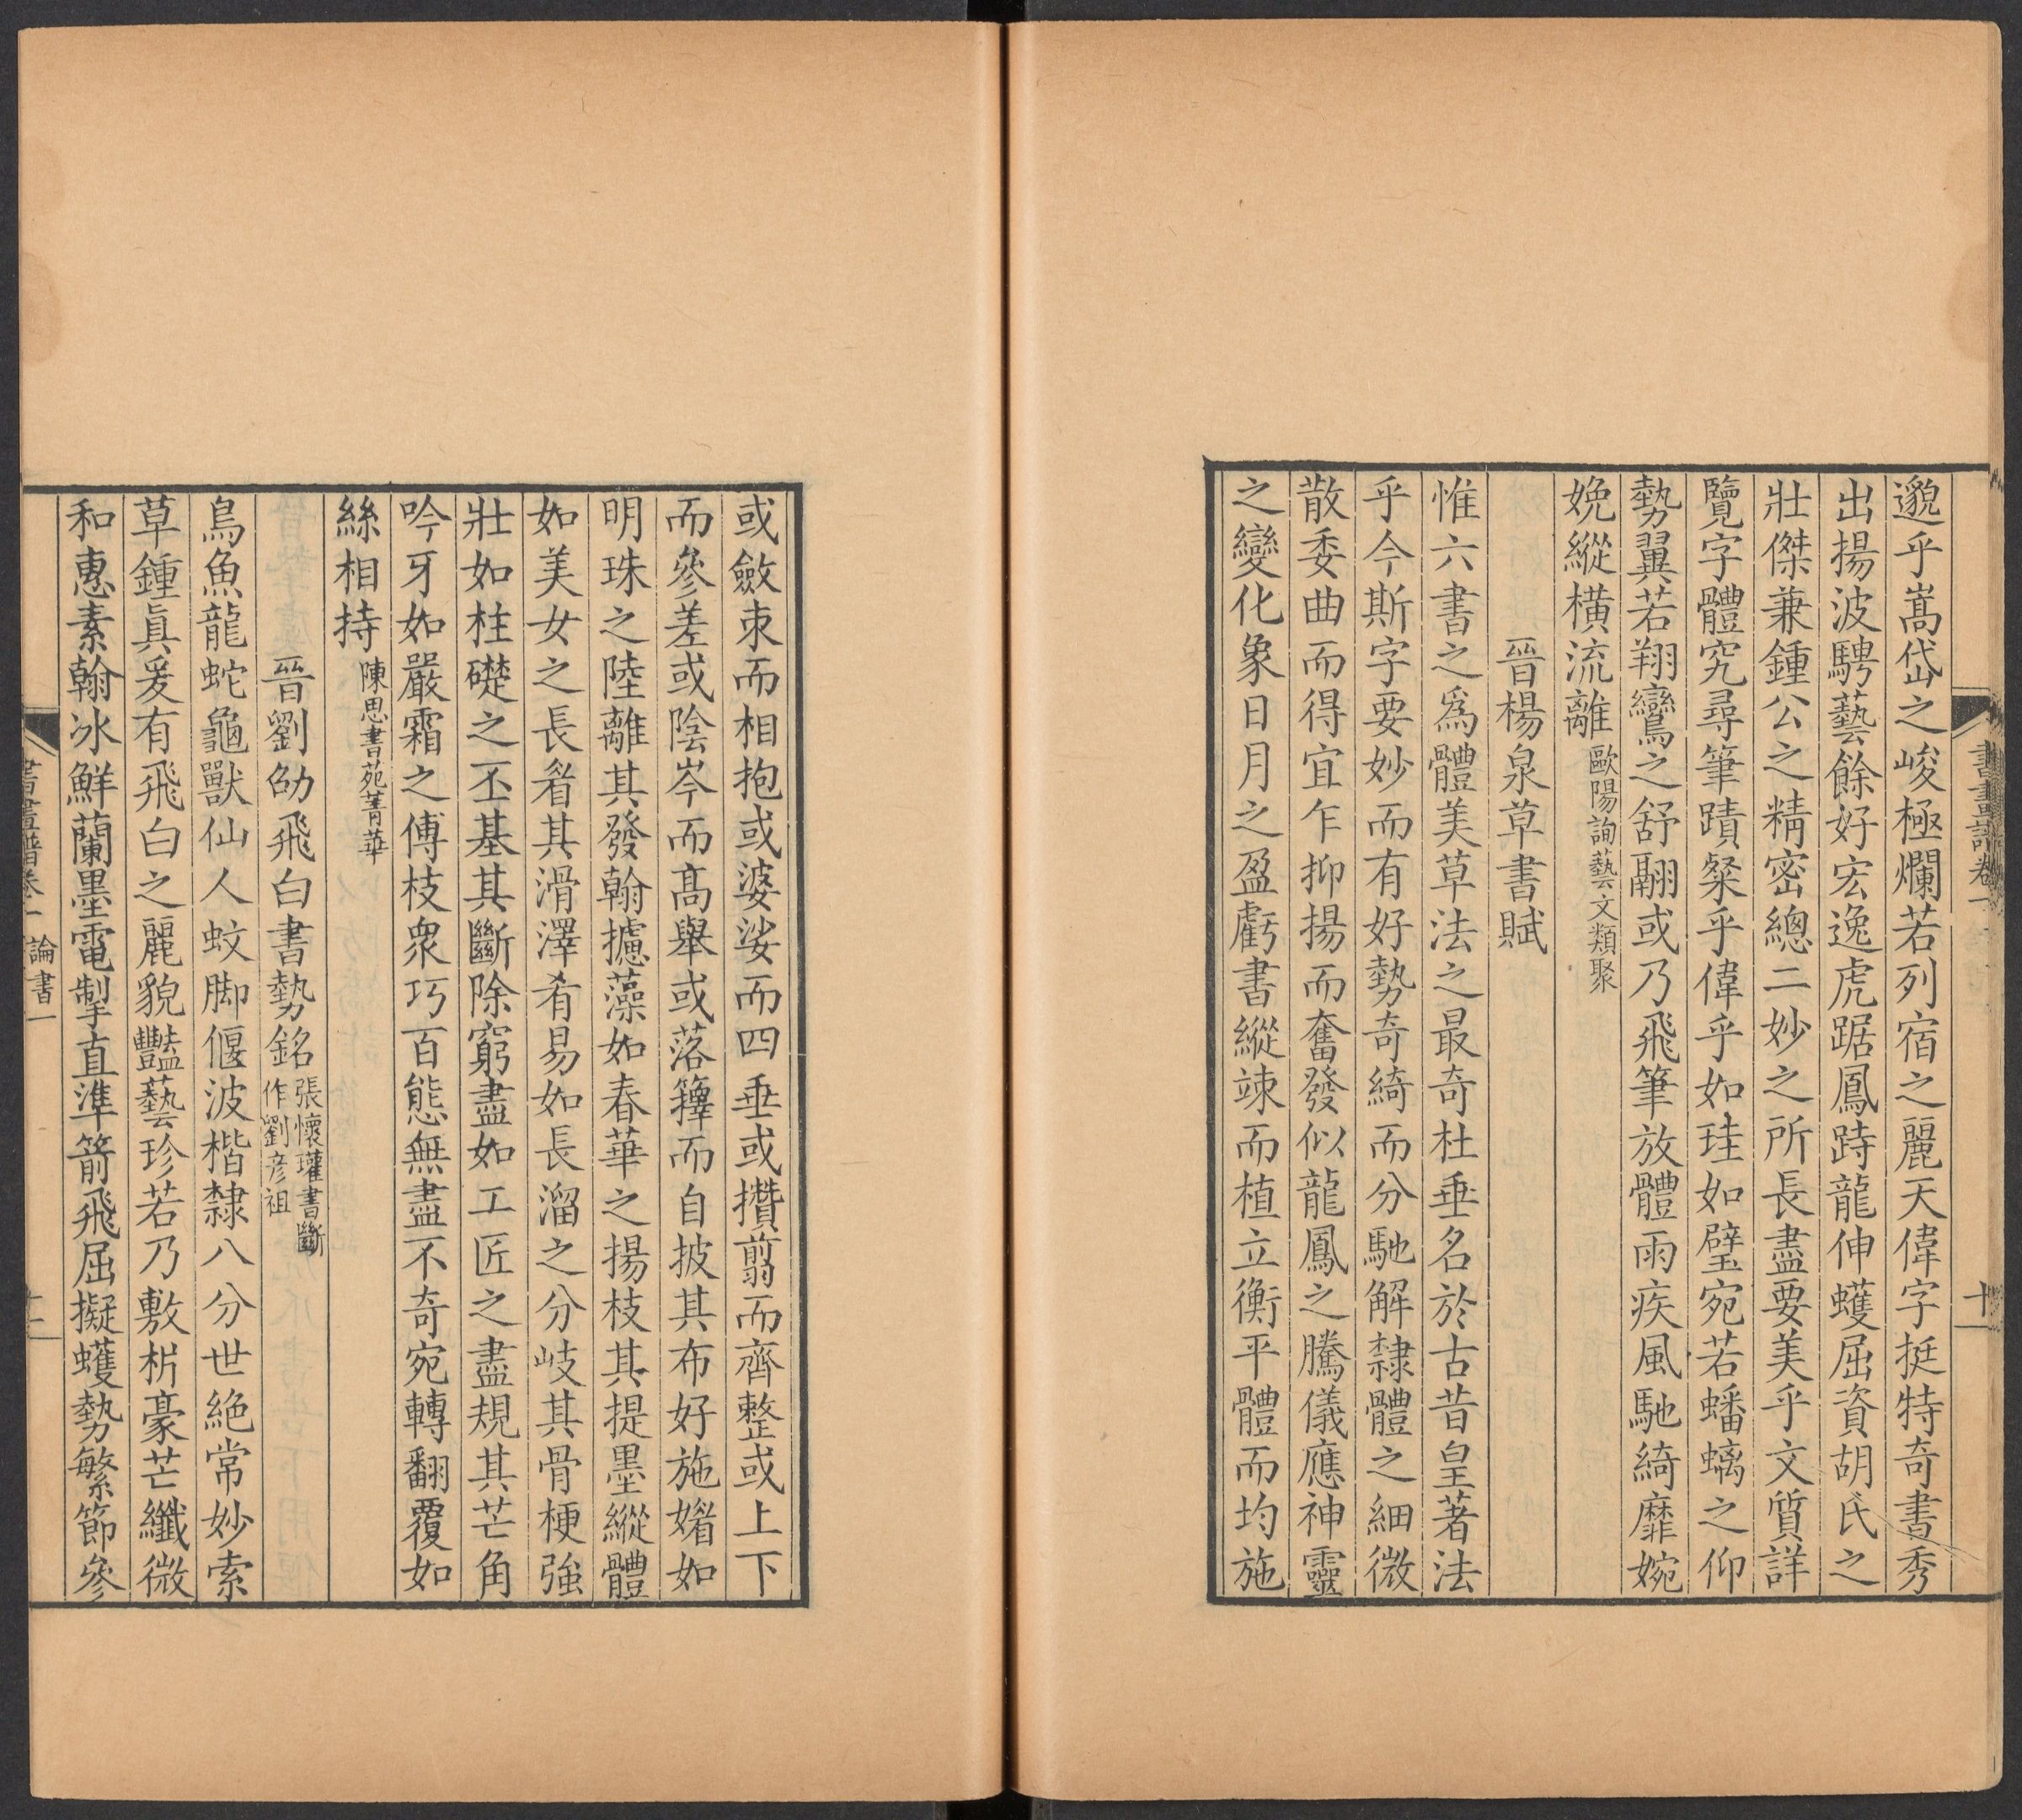 書畫譜卷一 十一
邈乎嵩岱之峻極爛若列宿之麗天偉字挺特奇書秀
出揚波騁藝餘好宏逸虎踞鳳跱龍伸蠖屈資胡氏之
壯傑兼鍾公之精密總二妙之所長盡要美乎文質詳
覽字體究尋筆蹟粲乎偉乎如珪如璧宛若蟠螭之仰
勢翼若翔鸞之舒翮或乃飛筆放體雨疾風馳綺靡婉
娩縱橫流離歐陽詢藝文類聚
晉楊泉草書賦
惟六書之爲體美草法之最奇杜垂名於古昔皇著法
乎今斯字要妙而有好勢奇綺而分馳解隸體之細微
散委曲而得宜乍抑揚而奮發似龍鳳之騰儀應神靈
之變化象日月之盈虧書縱竦而植立衡平體而均施
或斂束而相抱或婆娑而四垂或攢翦而齊整或上下
而參差或陰岑而高舉或落籜而自披其布好施媎如
明珠之陸離其發翰攄藻如春華之揚枝其提墨縱體
如美女之長眉其滑澤肴易如長溜之分岐其骨梗強
壯如柱礎之丕基其斷除窮盡如工匠之盡規其芒角
吟牙如嚴霜之傅枝衆巧百態無盡不奇宛轉翻覆如
絲相持陳思書苑菁華
晉劉劭飛白書勢銘張懷瓘書斷
作劉彥祖
鳥魚龍蛇龜獸仙人蚊脚偃波楷隸八分世絕常妙索
草鍾眞爰有飛白之麗貌豔藝珍若乃敷析豪芒纖微
和惠素翰冰鮮蘭墨電掣直準箭飛屈擬蠖勢繁節參
書畫譜卷一 論書一 十二